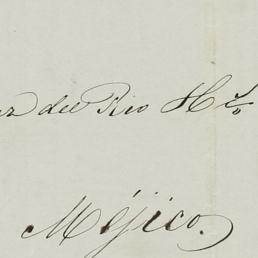 del Rio H
Méjico.